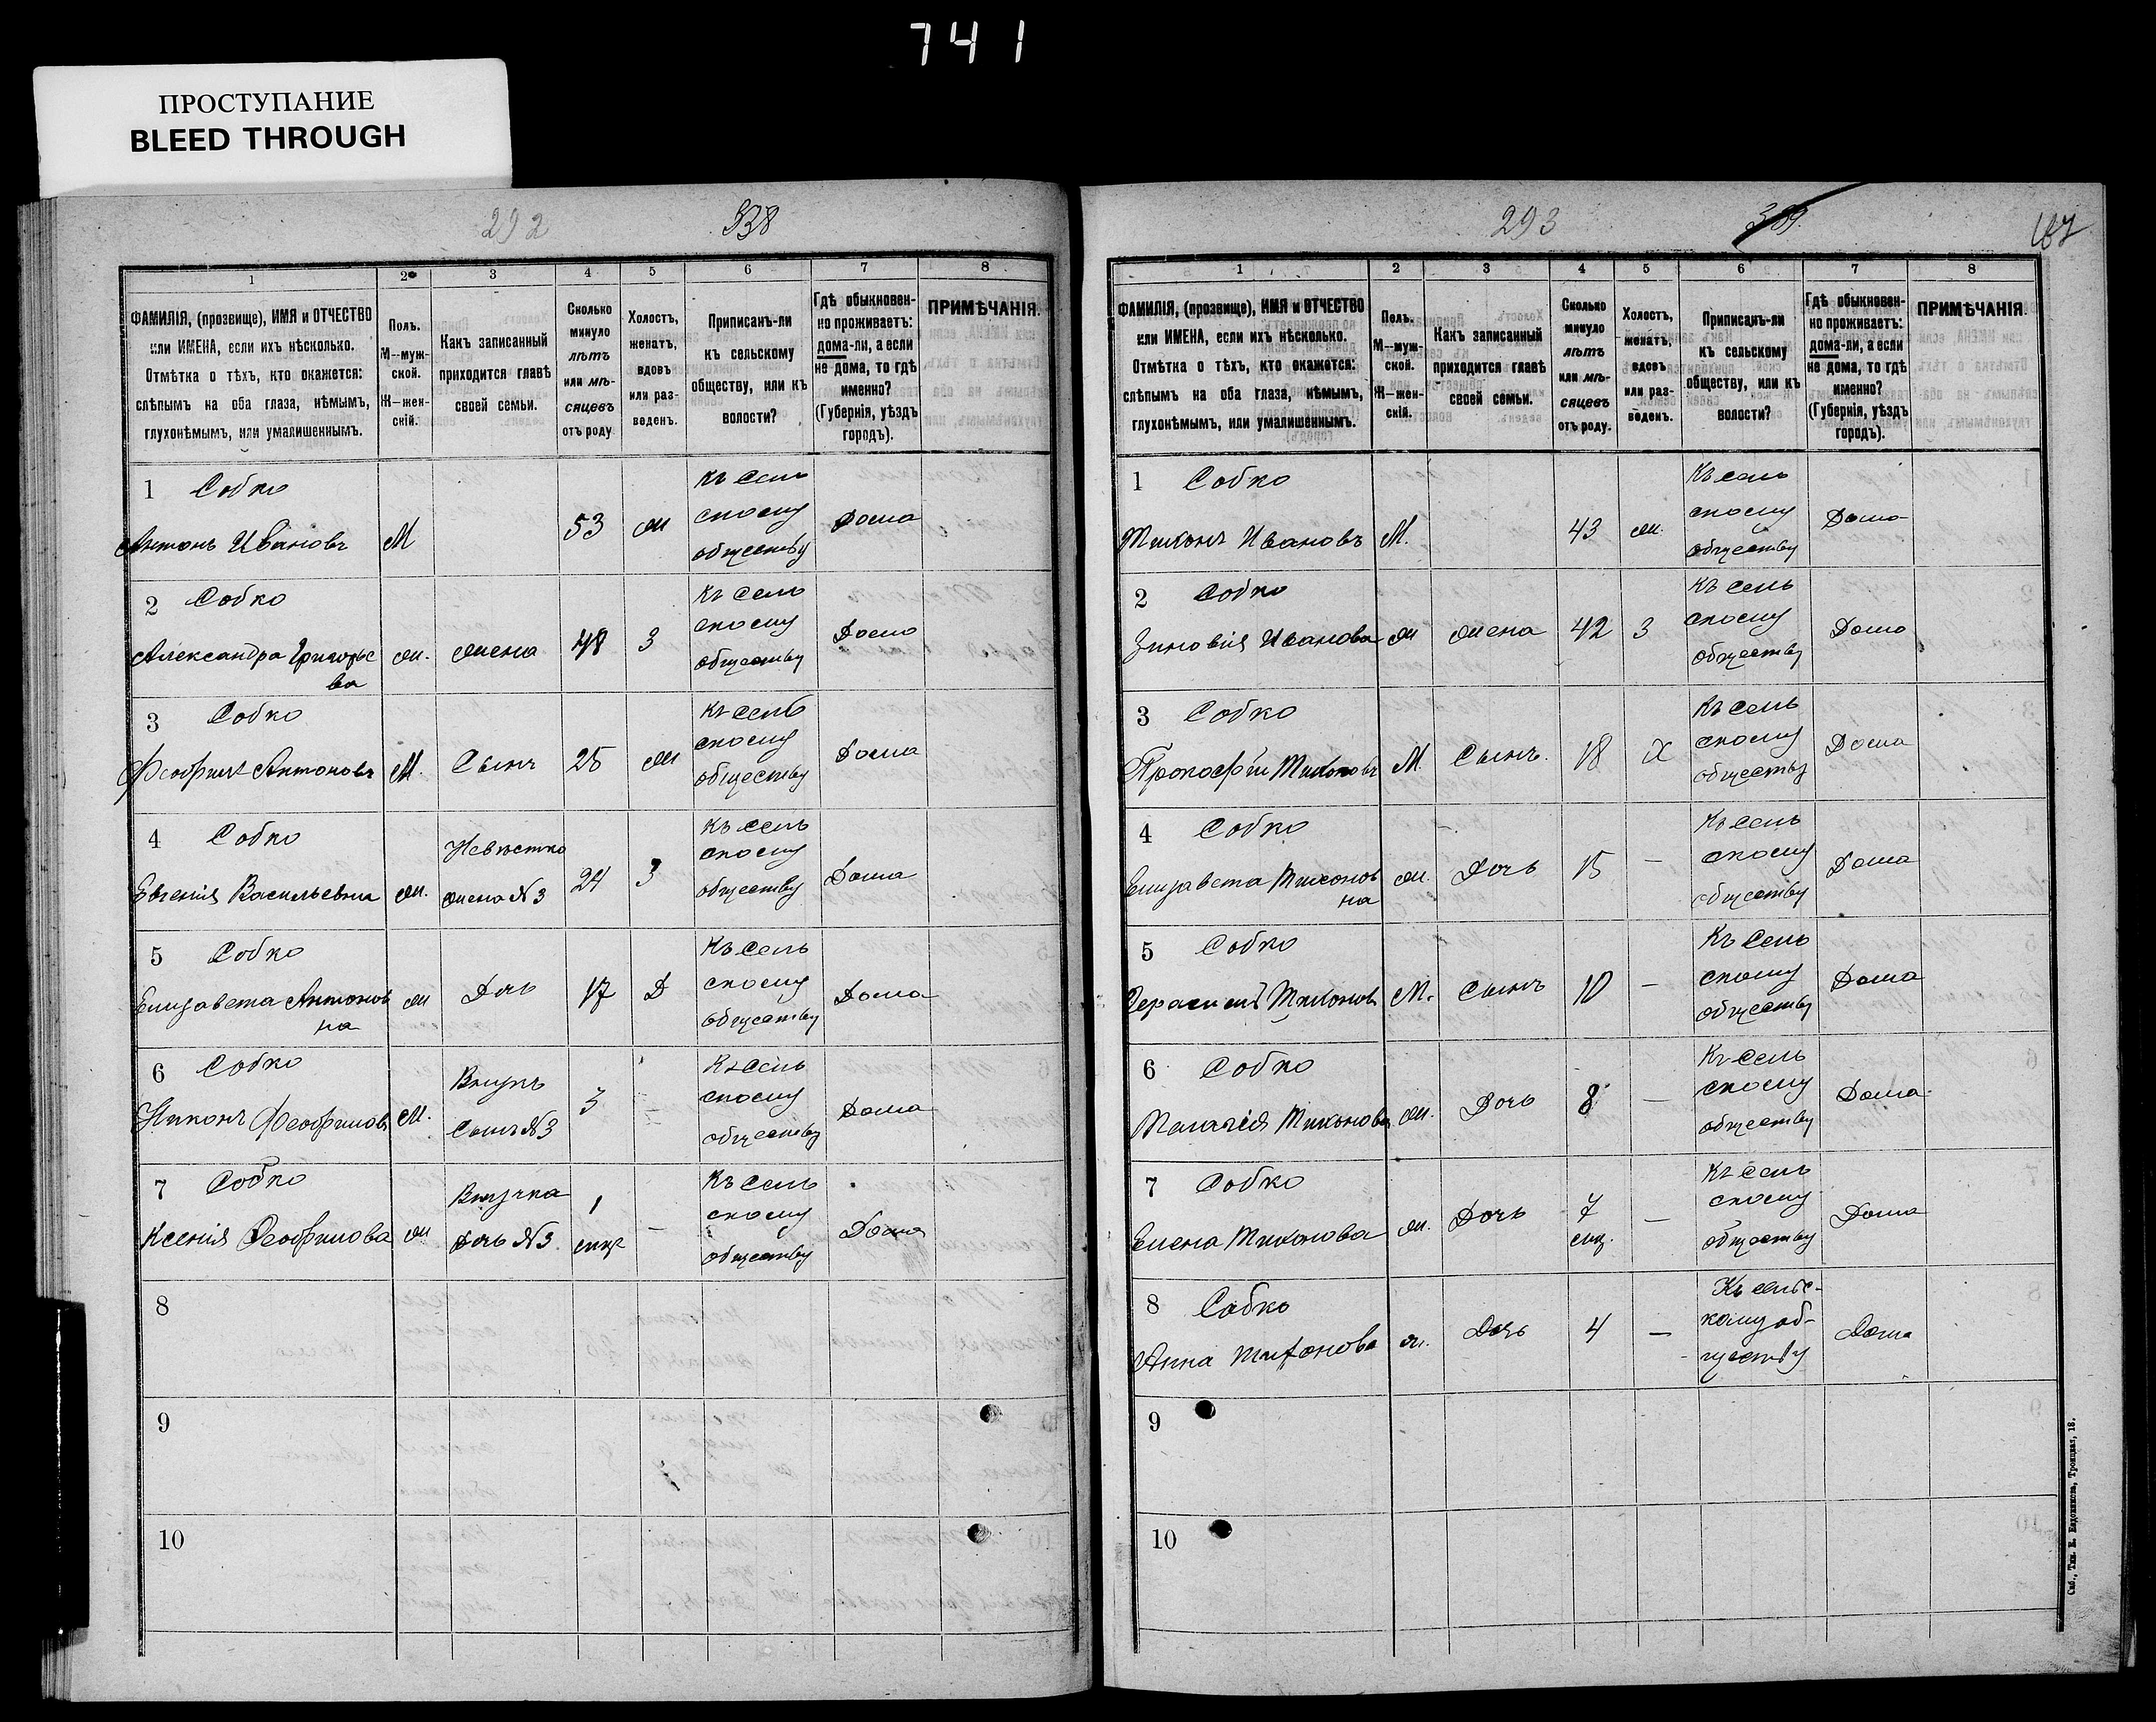 741
ПРОСТУПАНИЕ
BLEED THROUGH
292
338
1
2
3
4
5
6
7
8
ФАМИЛІЯ, (прозвище), ИМЯ и ОТЧЕСТВО
или ИМЕНА, если ихъ нѣсколько.
Отмѣтка о тѣхъ, кто окажется:
слѣпымъ на оба глаза, нѣмымъ,
глухонѣмымъ, или умалишеннымъ.
Полъ.
М—муж-
ской.
Ж—жен-
скій.
Какъ записанный
приходится главѣ
своей семьи.
Сколько
минуло
лѣтъ
или мѣ-
сяцевъ
отъ роду
Холостъ,
женатъ,
вдовъ
или раз-
веденъ.
Приписанъ-ли
къ сельскому
обществу, или къ
волости?
Гдѣ обыкновен-
но проживаетъ:
дома-ли, а если
не дома, то гдѣ
именно?
(Губернія, уѣздъ
городъ).
ПРИМѢЧАНІЯ.
1 Собко
Антонъ Ивановъ
М
53
ж
Къ сель
скому
обществу
Дома
2 Собко
Александра Григорье
ва
ж.
жена
48
З
Къ сель
скому
обществу
Дома
3 Собко
Феофилъ Антоновъ
М.
Сынъ
25
ж
Къ сель
скому
обществу
Дома
4 Собко
Евгенія Васильевна
ж.
Невѣстка
жена №3
24
З
Къ сель
скому
обществу
Дома
5 Собко
Елизавета Антонов
на
ж
Дочь
17
Д
Къ сель
скому
обществу
Дома
6 Собко
Никонъ Феофиловъ
М.
Внукъ
Сынъ №3
3
—
Къ сель
скому
обществу
Дома
7 Собко
Ксенія Феофилова
ж
Внучка
дочь №3
1
мѣц
—
Къ сель
скому
обществу
Дома
8
9
10
293
339
167
1
2
3
4
5
6
7
8
ФАМИЛІЯ, (прозвище), ИМЯ и ОТЧЕСТВО
или ИМЕНА, если ихъ нѣсколько.
Отмѣтка о тѣхъ, кто окажется:
слѣпымъ на оба глаза, нѣмымъ,
глухонѣмымъ, или умалишеннымъ.
Полъ.
М—муж-
ской.
Ж—жен-
скій.
Какъ записанный
приходится главѣ
своей семьи.
Сколько
минуло
лѣтъ
или мѣ-
сяцевъ
отъ роду.
Холостъ,
женатъ,
вдовъ
или раз-
веденъ.
Приписанъ-ли
къ сельскому
обществу, или къ
волости?
Гдѣ обыкновен-
но проживаетъ:
дома-ли, а если
не дома, то гдѣ
именно?
(Губернія, уѣздъ
городъ).
ПРИМѢЧАНІЯ.
1 Собко
Тихонъ Ивановъ
М.
43
ж.
Къ сель
скому
обществу
Дома
2 Собко
Зиновія Иванова
ж
жена
42
З
Къ сель
скому
обществу
Дома
3 Собко
Прокофій Тихоновъ
М.
Сынъ.
18
Х
Къ сель
скому
обществу
Дома
4 Собко
Елизавета Тихонов
на
ж.
Дочь
15
—
Къ сель
скому
обществу
Дома
5 Собко
Герасимъ Тихоновъ
М.
Сынъ
10
—
Къ сель
скому
обществу
Дома
6 Собко
Пелагія Тихонова
ж.
Дочь
8
—
Къ сель
скому
обществу
Дома
7 Собко
Елена Тихонова
ж.
Дочь
7
мц.
—
Къ сель
скому
обществу
Дома
8 Собко
Анна Тихонова
ж.
Дочь
4
—
Къ сельс-
кому об-
ществу
Дома
9
10
Спб., Тип. Е. Евдокимова, Троицкая, 18.